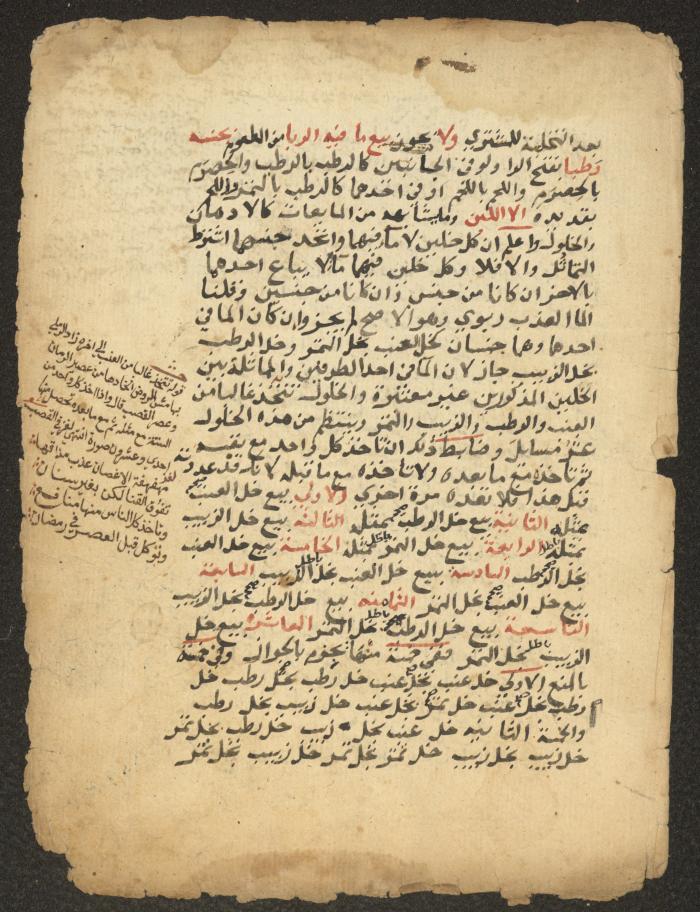 بعد التخلية للمشتري ولا يجوز بيع ما فيه الربا من المطعوم بجنسه
رطبا بفتح الرا ولو في الجانبين كالرطب بالرطب والحصرم
بالحصرم واللحم باللحم او في احدهما كالرطب بالتمر واللحم
بقديده الا اللبن وما يشابهه من المايعات كالادهان
والخلول واعلم ان كل خلين لا ما فيهما واتحد جنسهما اشترط
التماثل والا فلا وكل خلين فيهما ما لا يباع احدهما
بالاخر ان كانا من جنس وان كانا من جنسين وقلنا
الما العذب ربوي وهو الاصح لم يجز وان كان الما في
احدهما وهما جنسان كخل العنب بخل التمر وخل الرطب
بخل الزبيب جاز لان الما في احد الطرفين والمماثلة بين
الخلين المذكورين غير معتبرة والخلول تتخذ غالبا من
العنب والرطب والزبيب والتمر وينتظم من هذه الخلول
عشر مسايل وضابط ذلك ان تاخذ كل واحد مع نفسه
ثم تاخذه مع ما بعده ولا تاخذه مع ما قبله لانك قد عددته
قبل هذا فلا تعده مرة اخري الاولي بيع خل العنب
بمثله الثانية بيع خل الرطب بمثله الثالثة بيع خل الزبيب
بمثله الرابعة بيع خل التمر بمثله الخامسة بيع خل العنب
بخل الرطب السادسة بيع خل العنب بخل الزبيب السابعة
بيع خل العنب بخل التمر الثامنة بيع خل الرطب بخل الزبيب
التاسعة بيع خل الرطب بخل التمر العاشرة بيع خل
الزبيب بخل التمر ففي خمسة منها يجزم بالجواز وفي خمسة
بالمنع الاولي خل عنب بخل عنب خل رطب بخل رطب خل
رطب بخل عنب خل تمر بخل عنب خل زبيب بخل رطب
والخمسة الثانية خل عنب بخل زبيب خل رطب بخل تمر
خل زبيب بخل زبيب خل تمر بخل تمر خل زبيب بخل تمر
قوله تتخذ غالبا من العنب الي اخره زاد
وعصر القصب قال واذا اخذ كل واحد من
الستة مع مثله ثم مع ما بعده تحصل منها
احدي وعشرون صورة انتهي لغز في القصب
مهفهفة الاغصان عذب مذاقها
تفوق القنا لكن بغير سنان
وياخذ كل الناس منها منافع
وتوكل قبل العصر في رمضان